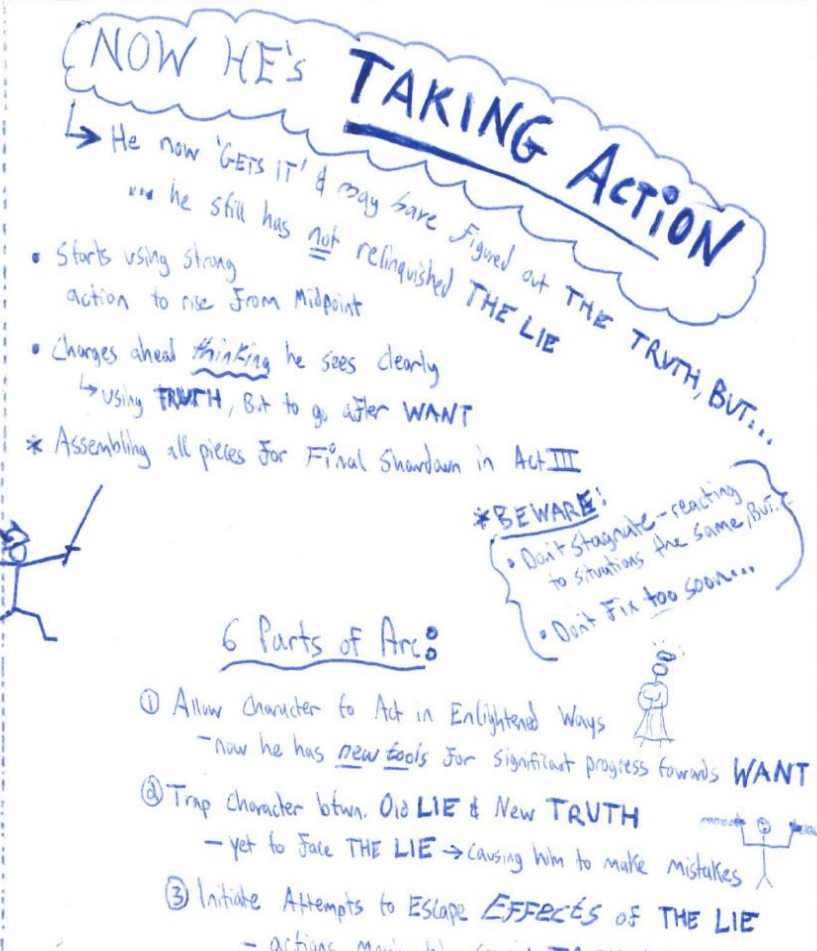 NOW HE's TAKING ACTION
↳ He now 'GETS IT' & may have Figured out THE TRUTH, BUT...
... he still has not relinquished THE LIE
• Starts using strong
action to rise from Midpoint
• Charges ahead thinking he sees clearly
↳ using TRUTH, But to go after WANT
* Assembling all pieces for Final Showdown in Act III
* BEWARE:
• Don't stagnate - reacting
to situations the same, BUT...
• Don't Fix too soon...
6 Parts of Arc:
① Allow Character to Act in Enlightened Ways
- now he has new tools for significant progress towards WANT
② Trap Character btwn. Old LIE & New TRUTH
- yet to face THE LIE → causing him to make mistakes
③ Initiate Attempts to Escape EFFECTS of THE LIE
- actions moving him